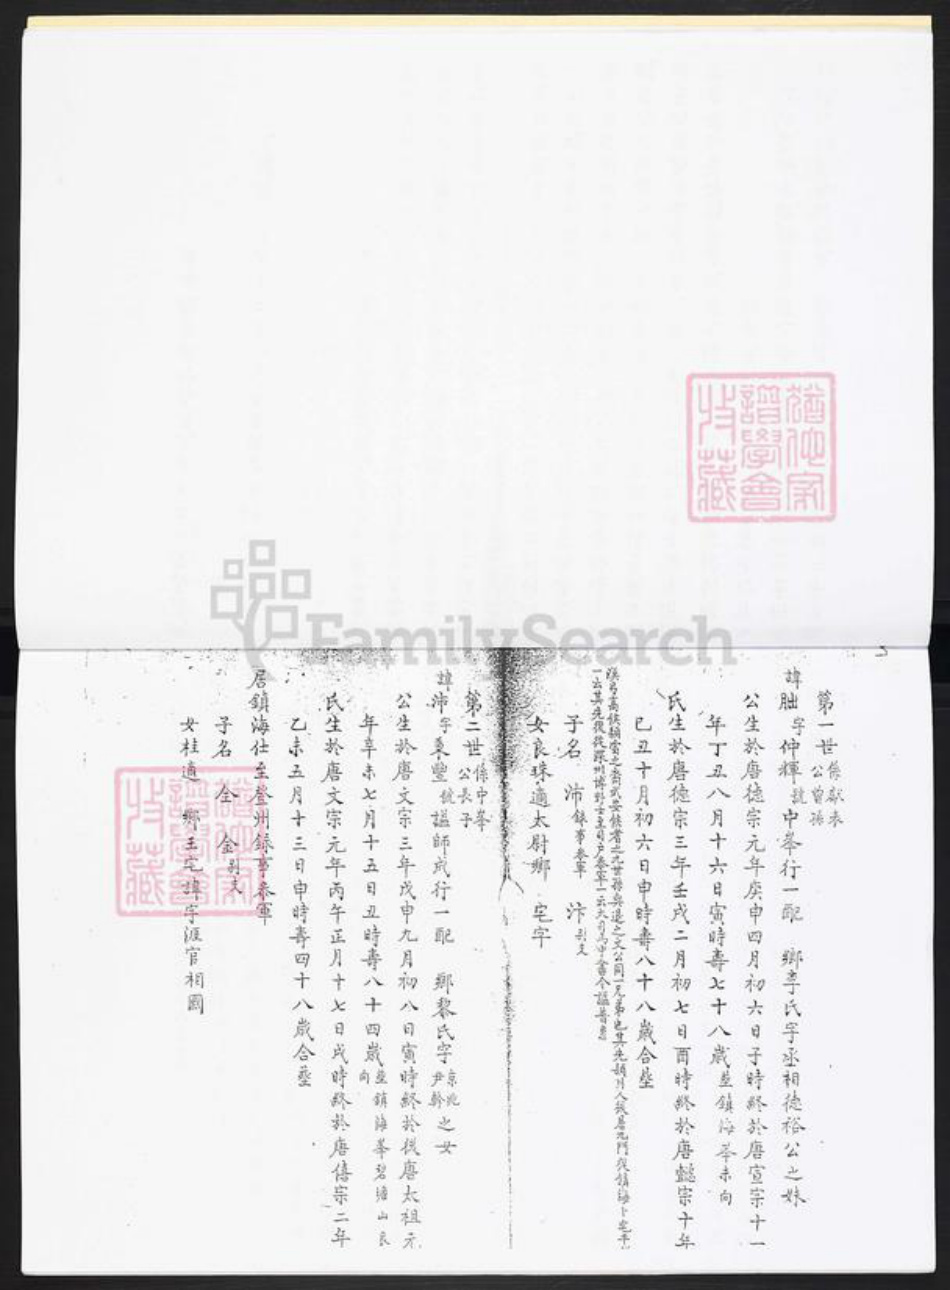 猶他家
譜學會
收藏
FamilySearch
第一世 係獻來公曾孫
諱朏字仲輝號中峯行一配 鄉李氏字丞相德裕公之妹
公生於唐德宗元年庚申四月初六日子時終於唐宣宗十一
年丁丑八月十六日寅時壽七十八歲塟鎮海峯未向
氏生於唐德宗三年壬戌二月初七日酉時終於唐懿宗十年
己丑十月初六日申時壽八十八歲合塟
子名 沛錄事參軍 汴別支
女良珠適太尉鄉 宅字
第二世 係中峯公長子
諱沛字東豐號 諡師成行一配 鄉黎氏字京兆尹幹之女
公生於唐文宗三年戊申九月初八日寅時終於後唐太祖元
年辛未七月十五日丑時壽八十四歲塟鎮海峯碧塘山艮向
氏生於唐文宗元年丙午正月十七日戌時終於唐僖宗二年
乙未五月十三日申時壽四十八歲合塟
居鎮海仕至登州錄事參軍
子名 全 金別支
女桂適 鄉王宅諱字涯官相國
猶他家
譜學會
收藏